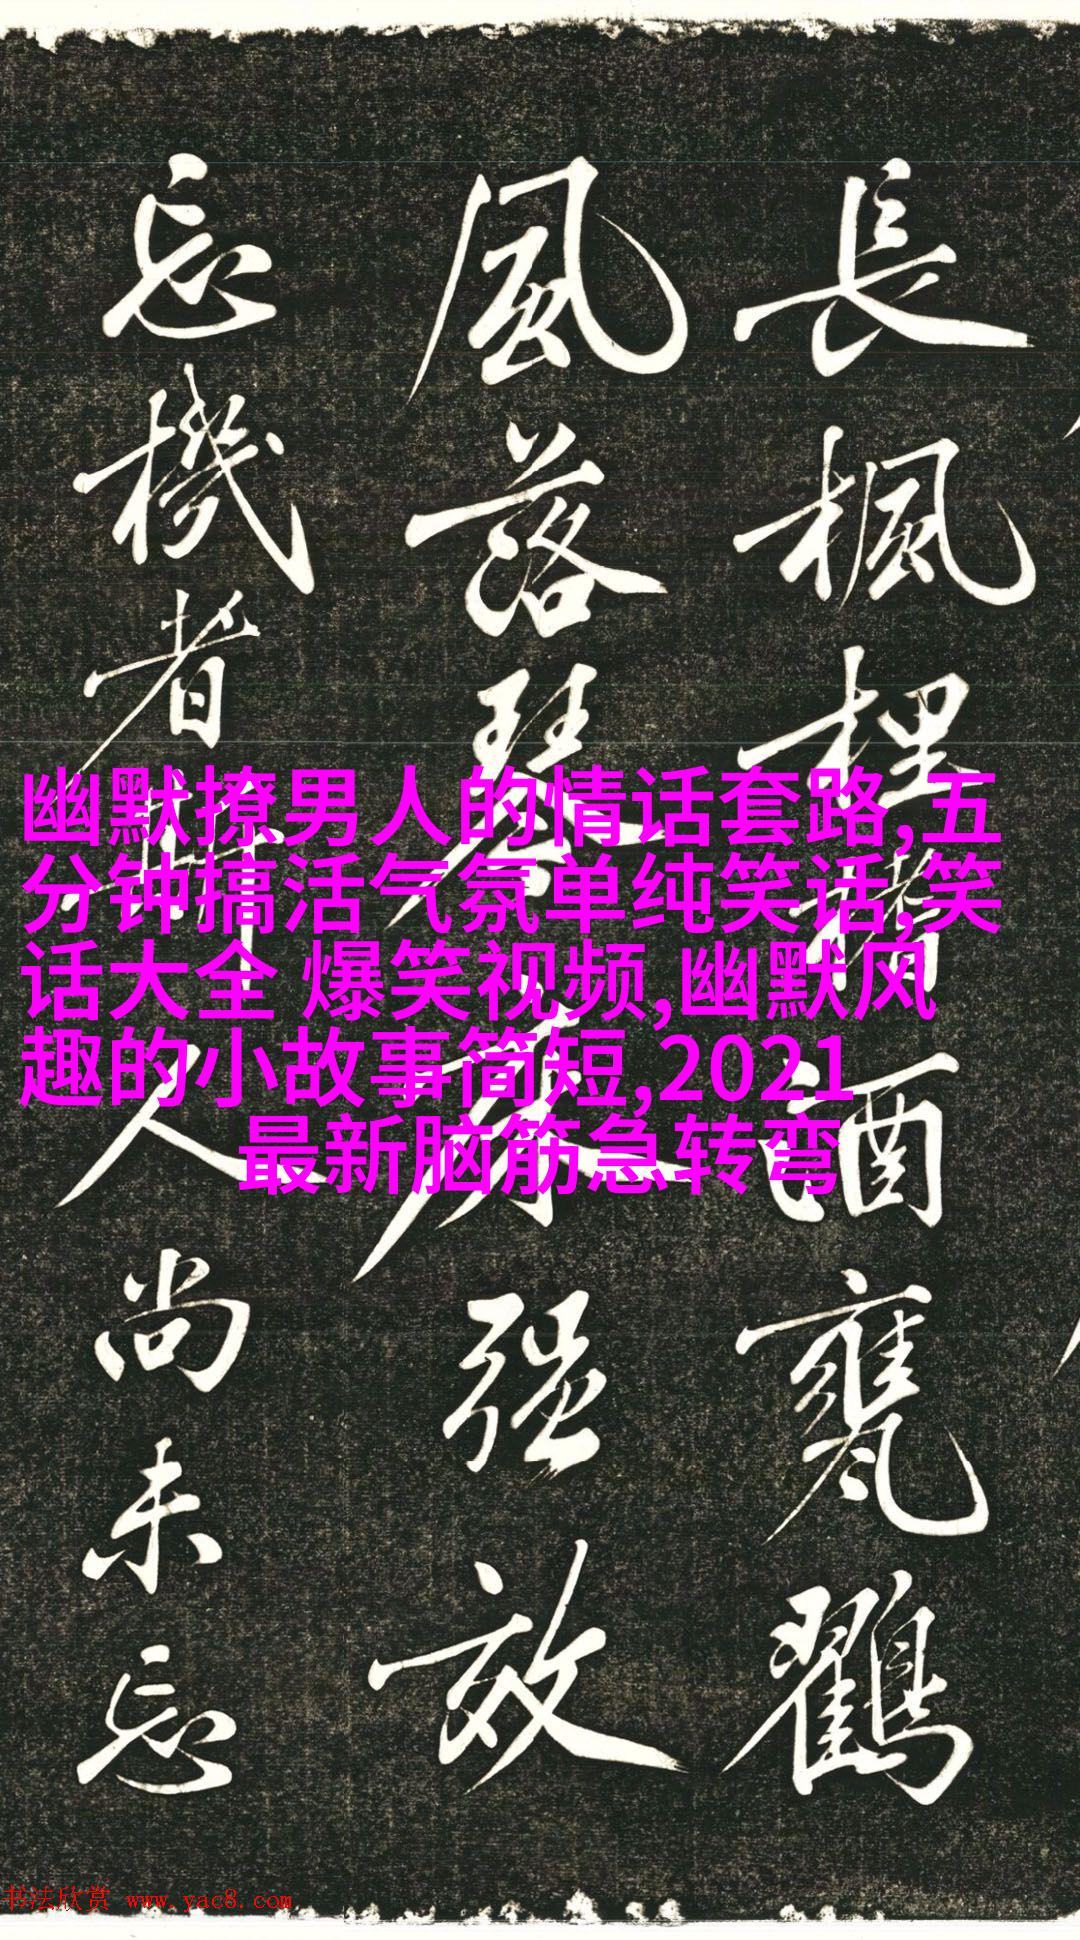 長楓酒甕
風落琴强
忘機者人尚未忘
幽默撩男人的情话套路,五
分钟搞活气氛单纯笑话,笑
话大全 爆笑视频,幽默风
趣的小故事简短,2021
最新脑筋急转弯
书法欣赏 www.yac8.com